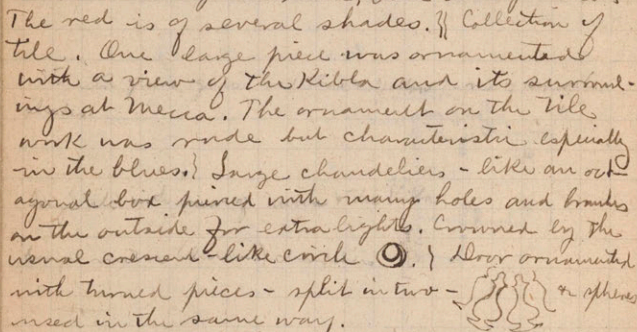 The red is of several shades. } Collection of
tile. One large piece was ornamented
with a view of the Kibla and its surround-
ings at Mecca. The ornament on the tile
work was rude but characteristic especially
in the blues. } Large chandeliers - like an oct-
agonal box pierced with many holes and branches
on the outside for extra lights. Crowned by the
usual crescent-like circle . } Door ornamented
with turned pieces - split in two - & spheres
used in the same way.